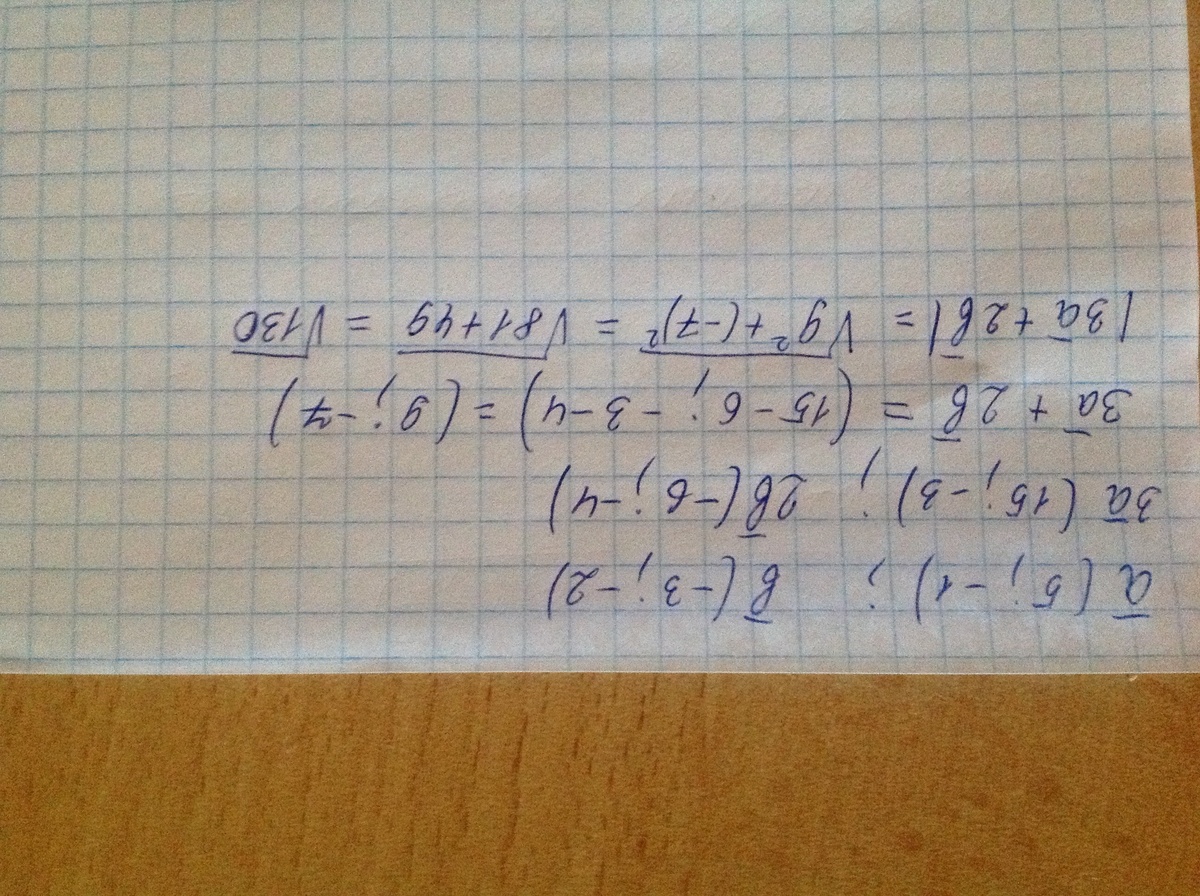 a̅ (5; -1); b̅ (-3; -2)
3a̅ (15; -3); 2b̅ (-6; -4)
3a̅ + 2b̅ = (15 - 6; -3 - 4) = (9; -7)
|3a̅ + 2b̅| = √9² + (-7)² = √81 + 49 = √130